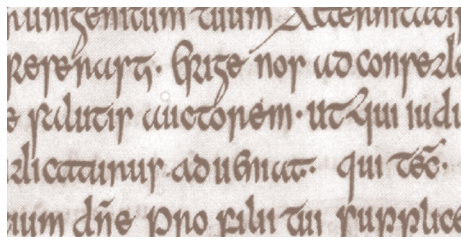 unigenitum tuum Aeternitati
reserasti· Erige nos ad consede
e salutis auctorem· ut qui iudi
dicaturus adueniat· qui tēc̄·
cium dn̄e pro filii tui supplice